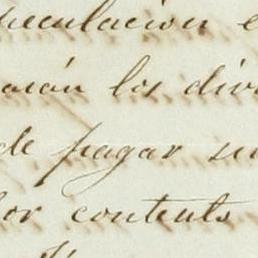 peculacion e
arán los divi
de pagar su
por contents